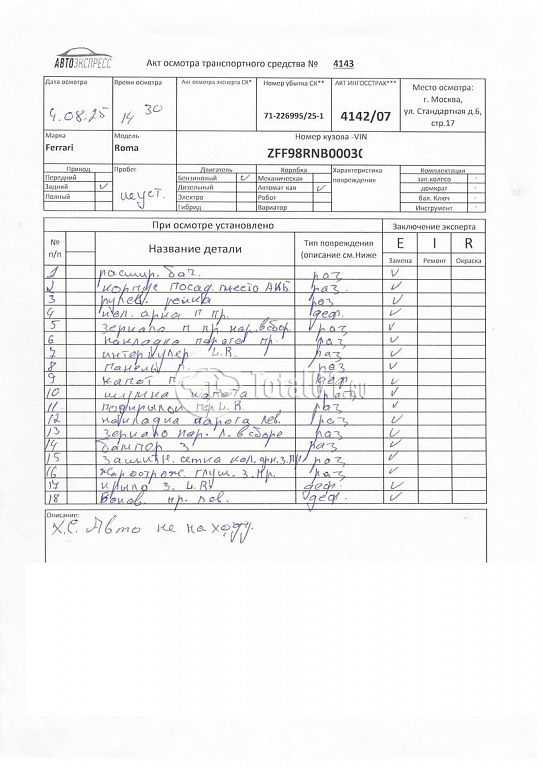 АВТОЭКСПРЕСС
Акт осмотра транспортного средства № 4143
Дата осмотра
Время осмотра
Акт осмотра эксперта СК*
Номер убытка СК**
АКТ ИНГОССТРАХ***
Место осмотра:
г. Москва,
ул. Стандартная д.6,
стр.17
4.08.25
14 30
71-226995/25-1
4142/07
Марка
Модель
Номер кузова -VIN
Ferrari
Roma
ZFF98RNB0003(
Привод
Пробег
Двигатель
Коробка
Характеристика
повреждения
Комплектация
Передний
Бензиновый ✓
Механическая
зап.колесо -
Задний ✓
Дизельный
Автомат кая ✓
домкрат -
Полный
Электро
Робот
бал. Ключ -
Гибрид
Вариатор
Инструмент -
При осмотре установлено
Заключение эксперта
№
п/п
Название детали
Тип повреждения
(описание см.Ниже
E I R
Замена Ремонт Окраска
1 расшир. бач. раз ✓
2 корпус посад. место АКБ раз. ✓
3 рулев. рейка раз ✓
4 арка п пр. деф. ✓
5 зеркало п пр нар. в сбор раз ✓
6 накладка порога пр. раз ✓
7 интеркулер L.R. раз ✓
8 панель п. раз ✓
9 капот п. деф. ✓
10 шумка капота раз ✓
11 подкрылок пер L.R. раз ✓
12 накладка порога лев. раз ✓
13 зеркало нар. л. в сборе раз ✓
14 бампер з раз ✓
15 защитн. сетка раз ✓
16 глуш. з. пр. раз ✓
17 крыло з. L.R деф. ✓
18 пр. лев. деф. ✓
TotalCar.ru
Описание:
Х.С. Авто не на ходу.